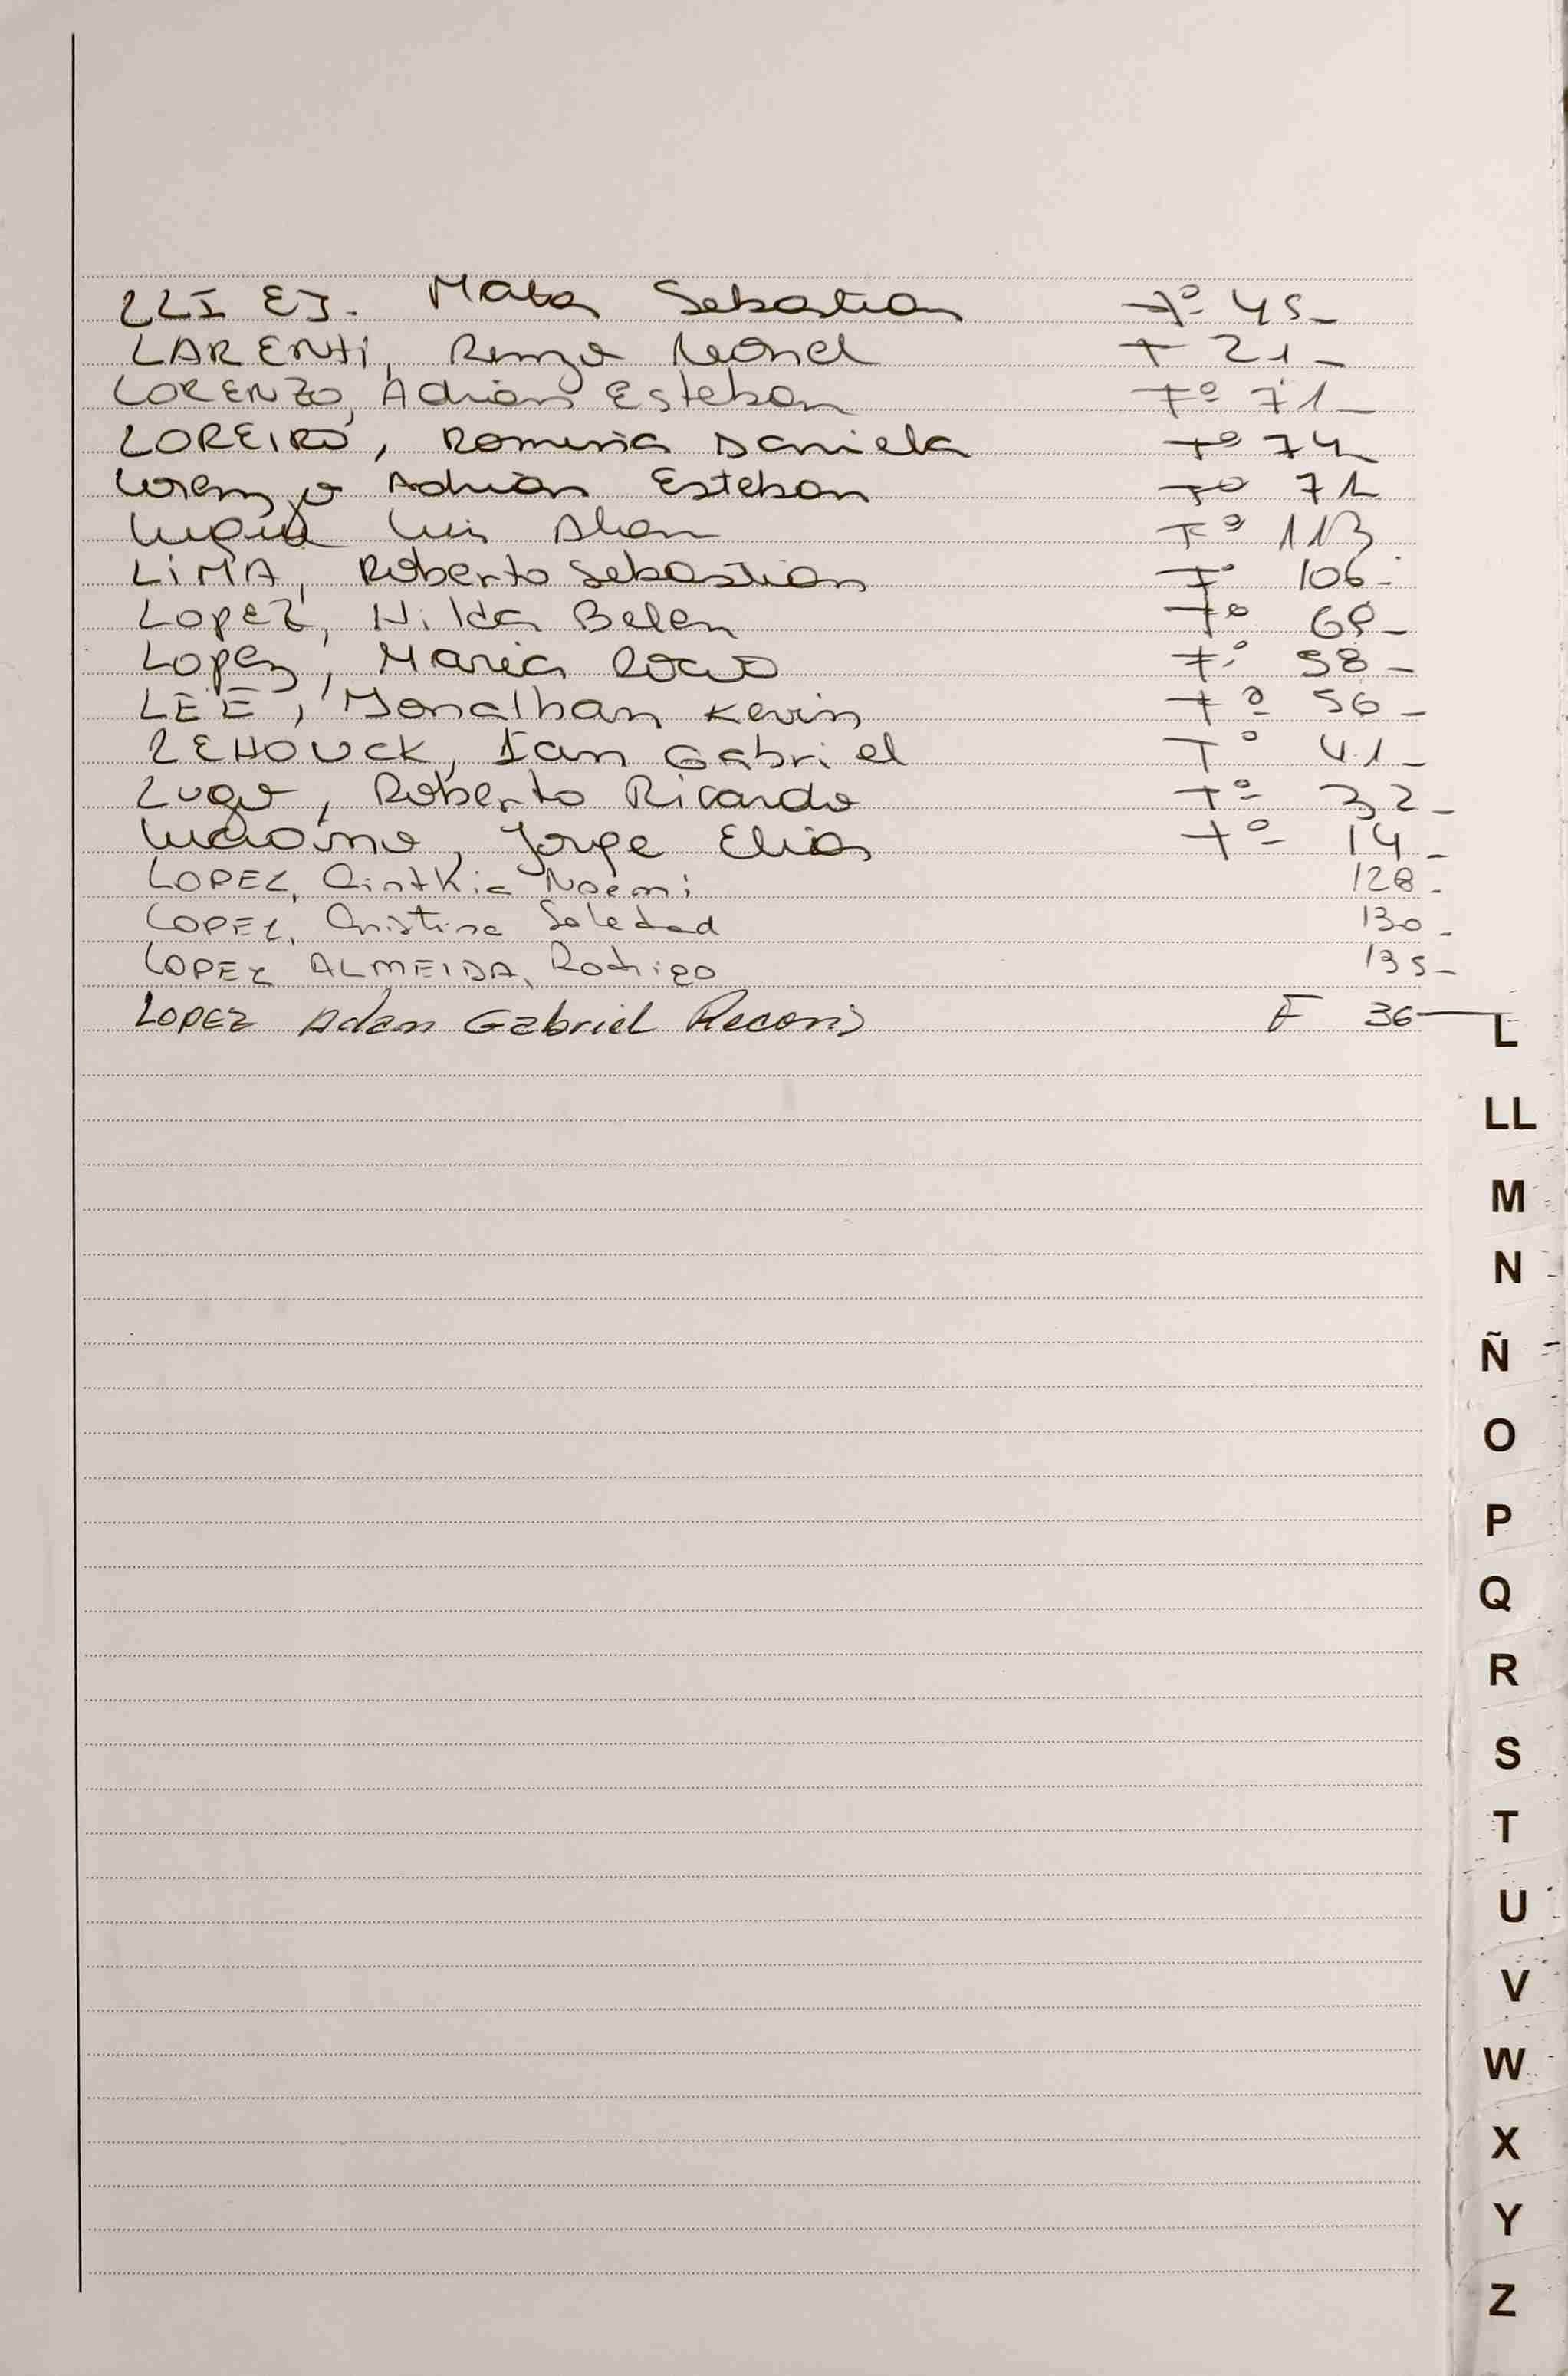 LLI EJ. Matas Sebastian Fº 45-
LARENTI, Renzo Leonel F 21-
LORENZO, Adrian Esteban Fº 71-
LOREIRO, Romina Daniela Fº 74
Lorenzo Adrian Esteban Fº 71
Luis Alan Fº 113
LIMA, Roberto Sebastian Fº 106-
LOPEZ, Hilda Belen Fº 69-
Lopez, Maria Rocio Fº 58-
LEE, Jonathan Kevin Fº 56-
LEHOUCK, Ian Gabriel Fº 41-
Lugo, Roberto Ricardo Fº 32-
Jorge Elias Fº 14-
LOPEZ, Cinthia Noemi 128-
LOPEZ, Cristina Soledad 130-
LOPEZ ALMEIDA, Rodrigo 135-
LOPEZ Adan Gabriel F 36
L
LL
M
N
Ñ
O
P
Q
R
S
T
U
V
W
X
Y
Z